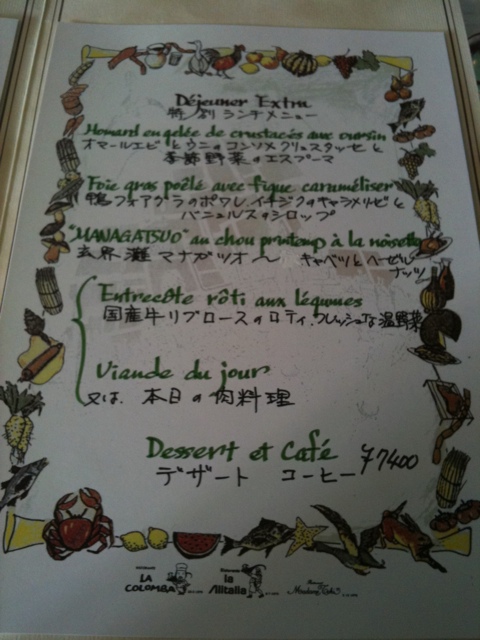 Déjeuner Extra
特別 ランチメニュー
Homard en gelée de crustacés aux oursin
オマールエビとウニのコンソメクリュスタッセと
季節野菜のエスプーマ
Foie gras poêlé avec figue caraméliser
鴨フォアグラのポワレ、イチジクのキャラメリゼと
バニュルスのシロップ
"MANAGATSUO" au chou printemps à la noisette
玄界灘マナガツオ〜 キャベツとヘーゼル
ナッツ
Entrecôte rôti aux légumes
国産牛リブロースのロティ、フレッシュな温野菜
Viande du jour
又は、本日の肉料理
Dessert et Café ¥7400
デザート コーヒー
LA COLOMBA
la Alitalia